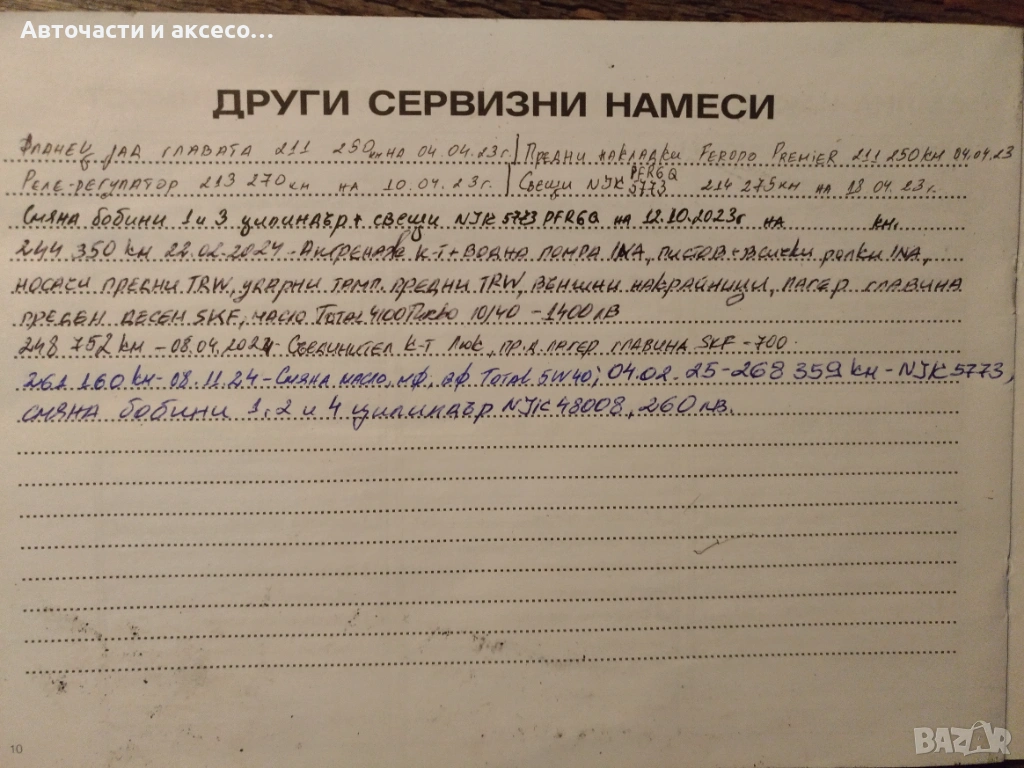 Авточасти и аксесо...
ДРУГИ СЕРВИЗНИ НАМЕСИ
Фланец зад главата 211 250 км на 04.04.23г. | Предни накладки Ferodo Premier 211 250км 04.04.23
Реле-регулатор 213 270 км на 10.04.23г. | Свещи NJK PFR6Q 5773 214 275км на 18.04.23г.
Смяна бобини 1 и 3 цилиндър + свещи NJK 5773 PFR6Q на 12.10.2023г на км.
244 350 км 22.02.2024 - Ангренаж к-т + водна помпа INA, пистов + всички ролки INA,
носачи предни TRW, ударни тамп. предни TRW, външни накрайници, лагер главина
преден десен SKF, масло Total 4100 10/40 - 1400 лв
248 752 км - 08.04.2024 - Съединител к-т Лук, пр. д. лагер главина SKF - 700.
261 160 км - 08.11.24 - Смяна масло, мф, вф. Total 5W40; 04.02.25 - 268 359 км - NJK 5773,
смяна бобини 1, 2 и 4 цилиндър NJK 48008, 260 лв.
10
BAZAR